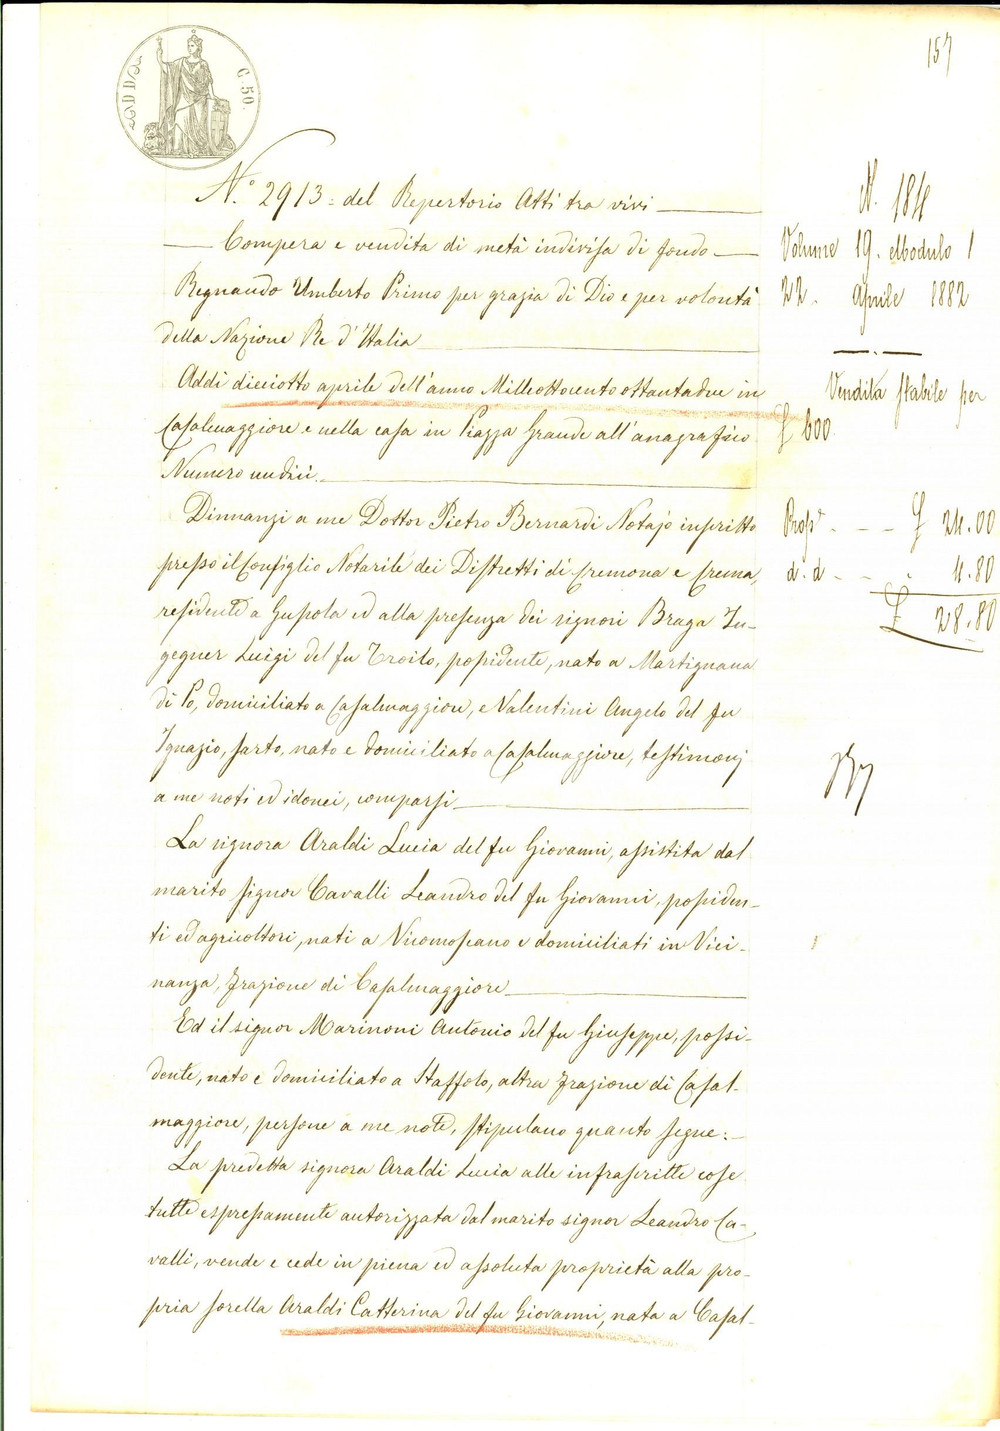 157
C. 50.
N.° 2913 = del Repertorio Atti tra vivi
Compera e vendita di metà indivisa di fondo
Regnando Umberto Primo per grazia di Dio e per volontà
della Nazione Re d'Italia
Addì dicciotto aprile dell'anno Milleottocentoottantadue in
Casalmaggiore e nella casa in Piazza Grande all'anagrafico
Numero undici.
Dinnanzi a me Dottor Pietro Bernardi Notajo inscritto
presso il Consiglio Notarile dei Distretti di Cremona e Crema,
residente a Gussola ed alla presenza dei signori Braga In-
gegner Luigi del fu Troilo, possidente, nato a Martignana
di Po, domiciliato a Casalmaggiore, e Valentini Angelo del fu
Ignazio, sarto, nato e domiciliato a Casalmaggiore, testimonj
a me noti ed idonei, comparsi
La signora Araldi Lucia del fu Giovanni, assistita dal
marito signor Cavalli Leandro del fu Giovanni, possiden-
ti ed agricoltori, nati a Vicomoscano e domiciliati in Vici-
nanza, frazione di Casalmaggiore
Ed il signor Marinoni Antonio del fu Giuseppe, possi-
dente, nato e domiciliato a Staffolo, altra frazione di Casal-
maggiore, persone a me note, stipulano quanto segue:
La predetta signora Araldi Lucia alle infrascritte cose
tutte espressamente autorizzata dal marito signor Leandro Ca-
valli, vende e cede in piena ed assoluta proprietà alla pro-
pria sorella Araldi Catterina del fu Giovanni, nata a Casal-
N. 1814
Volume 19. Modulo 1
22. Aprile 1882
Vendita stabile per
£ 600
£ 24.00
d. d 4.80
£ 28.80